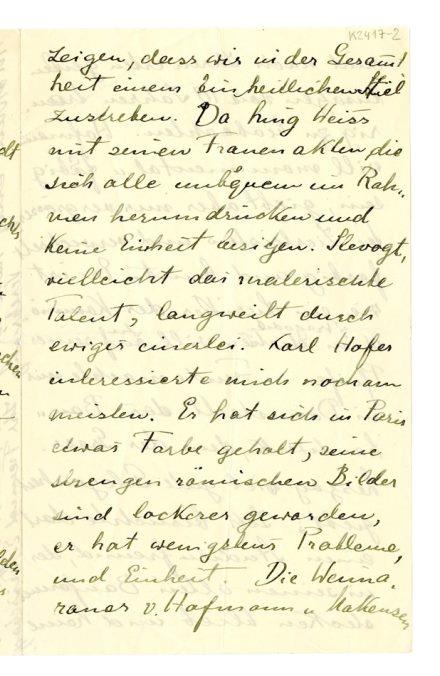 K2417-2
zeigen, dass wir in der Gesamt
heit einem einheitlichen Stiel
zustreben. Da hing Weiss
mit seinen Frauenakten, die
sich alle unbequem im Rah-
men herumdrücken und
keine Einheit besitzen. Slevogt,
vielleicht das malerischte
Talent, langweilt durch
ewiges einerlei. Karl Hofer
interessierte mich noch am
meisten. Er hat sich in Paris
etwas Farbe geholt, seine
strengen römischen Bilder
sind lockerer geworden,
er hat wenigstens Probleme,
und Einheit. Die Weima-
raner v. Hofmann u Makensen